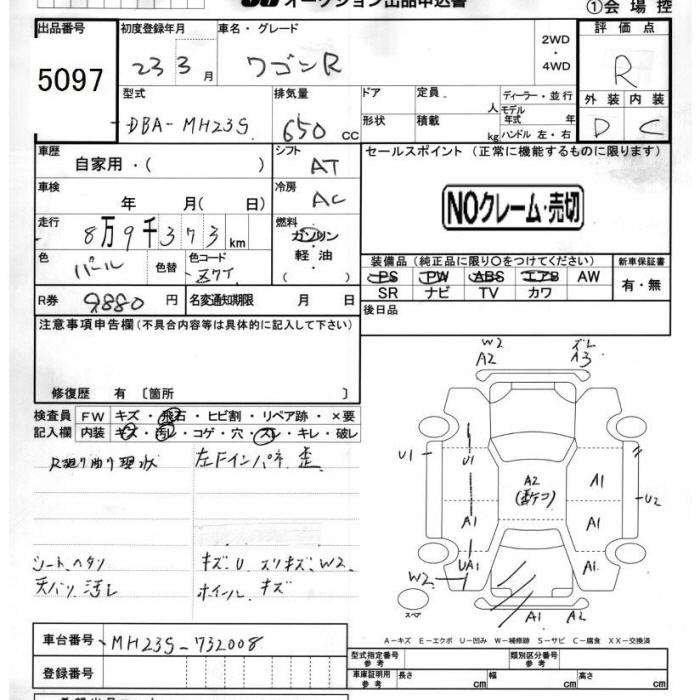 オークション出品申込書
①会場控
出品番号 初度登録年月 車名・グレード 評価点
5097 23 3月 ワゴンR 2WD・4WD R
型式 排気量 ドア 定員 人 ディーラー・並行
DBA-MH23S 650 cc 形状 積載 kg モデル年式 年 ハンドル 左・右
外装 内装
D C
車歴 自家用・( ) シフト AT
セールスポイント (正常に機能するものに限ります)
車検 年 月( 日) 冷房 AC
NOクレーム・売切
走行 8万9千373km 燃料 ガソリン・軽油・( )
色 パール 色替 色コード Z7T
装備品 (純正品に限り〇をつけてください) 新車保証書
PS PW ABS エアB AW 有・無
SR ナビ TV カワ
R券 9880円 名変通知期限 月 日
後日品
注意事項申告欄 (不具合内容等は具体的に記入して下さい)
修復歴 有 〔箇所 〕
検査員 FW キズ・飛石・ヒビ割・リペア跡・×要
記入欄 内装 キズ・汚レ・コゲ・穴・スレ・キレ・破レ
現状 左Fインパネ 歪
シートヘタリ キズ U スリキズ、W2
天バリ 汚レ ホイール キズ
W2 ズレ
A2 A3
U1 U1 A2 A1 U2
A1 A1
UA1 A1
W2
スペア A1 A2
A-キズ E-エクボ U-凹み W-補修跡 S-サビ C-腐食 XX-交換済
車台番号 MH23S-732008
型式指定番号 参考 類別区分番号 参考
登録番号
車庫証明用 参考 長さ cm 幅 cm 高さ cm